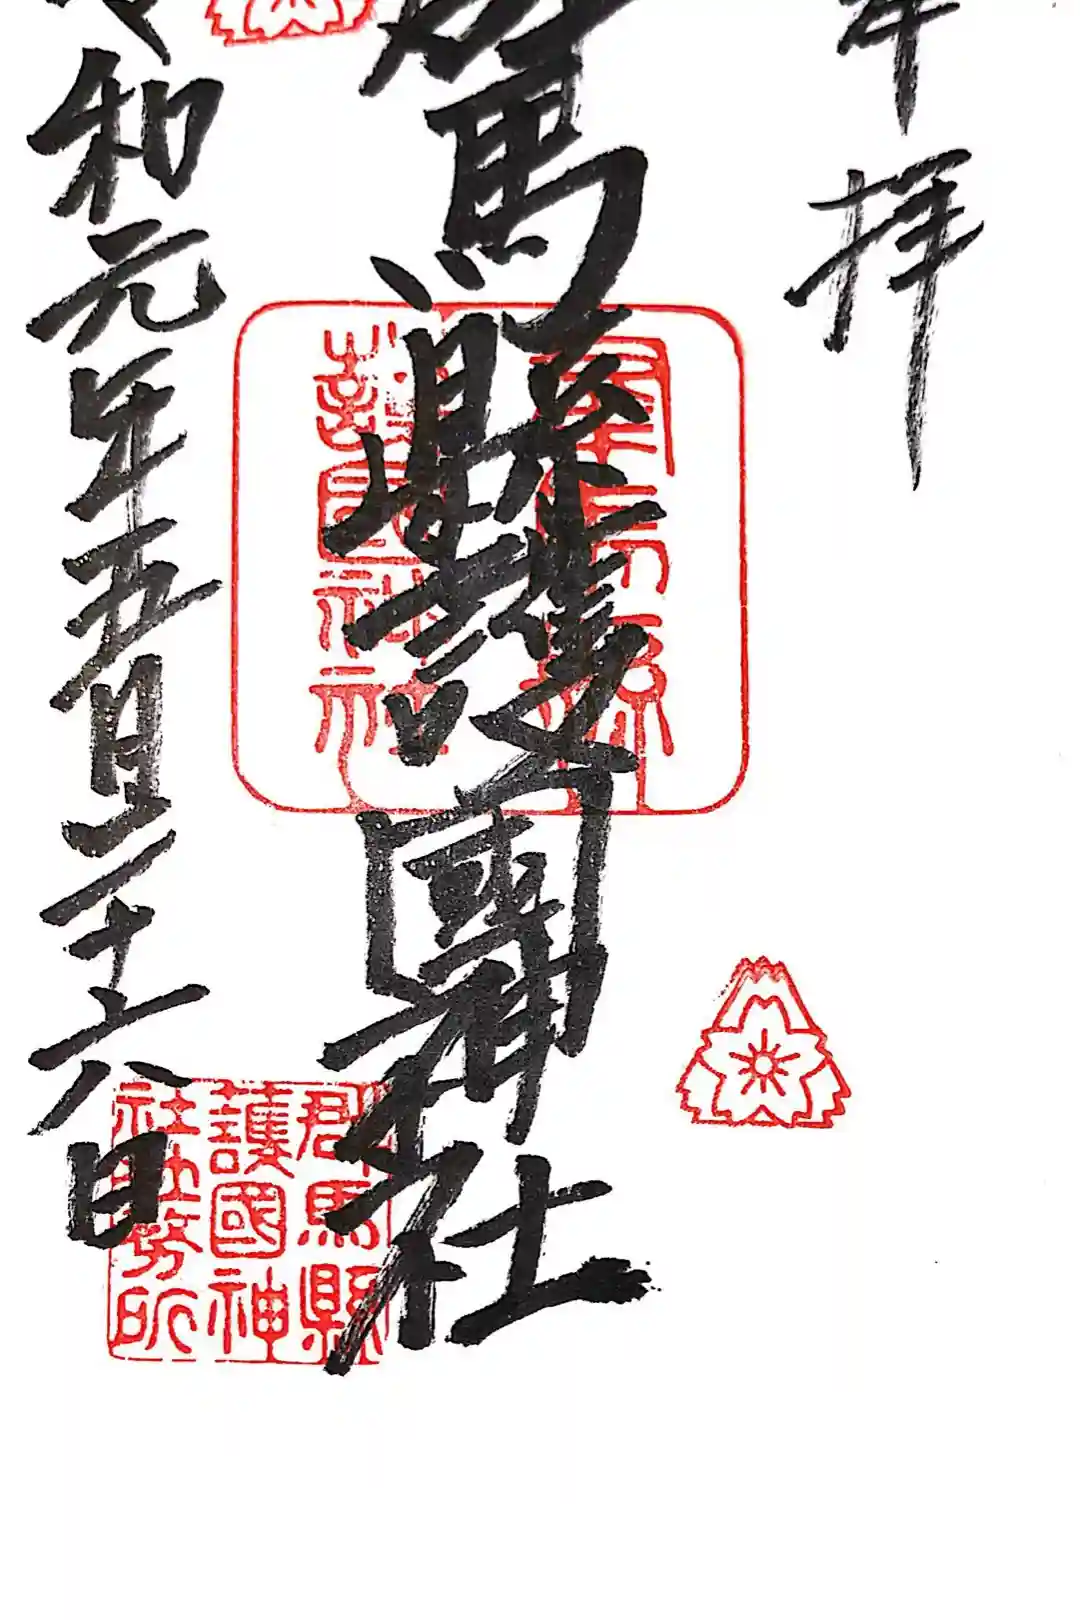 奉拝
群馬縣護國神社
群馬縣
護國神社
令和元年五月二十六日
群馬縣
護國神
社社務所